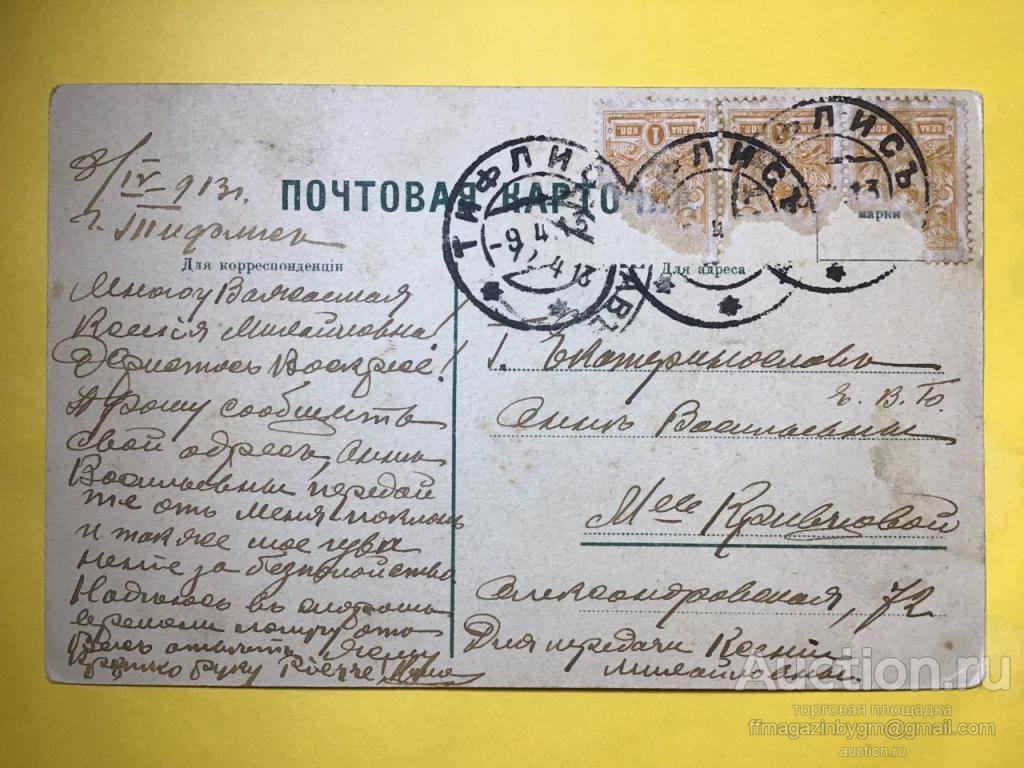 8/IV 913 г.
г. Тифлисъ
ПОЧТОВАЯ КАРТОЧКА
Для корреспонденціи
Для адреса
марки
ОДНА КОП.
1
ТИФЛИСЪ
-9.4.13
ТИФЛИСЪ
ТИФЛИСЪ
Много Уважаемая
Ксенія Михайловна!
Христосъ Воскресе!
Прошу сообщить
свой адресъ, Анны
Васильевны передай
те отъ меня поклонъ
и также мое изви
неніе за безпокойство
Надѣюсь въ скоромъ
времени получу отъ
Васъ отвѣтъ. Жму
крепко руку
Г. Екатеринославъ
Е. В. Б.
Аннѣ Васильевны
М-lle Кривчковой
Александровская, 72
Для передачи Ксеніи
Михайловны.
Auction.ru
торговая площадка
ffmagazinbygm@gmail.com
auction.ru